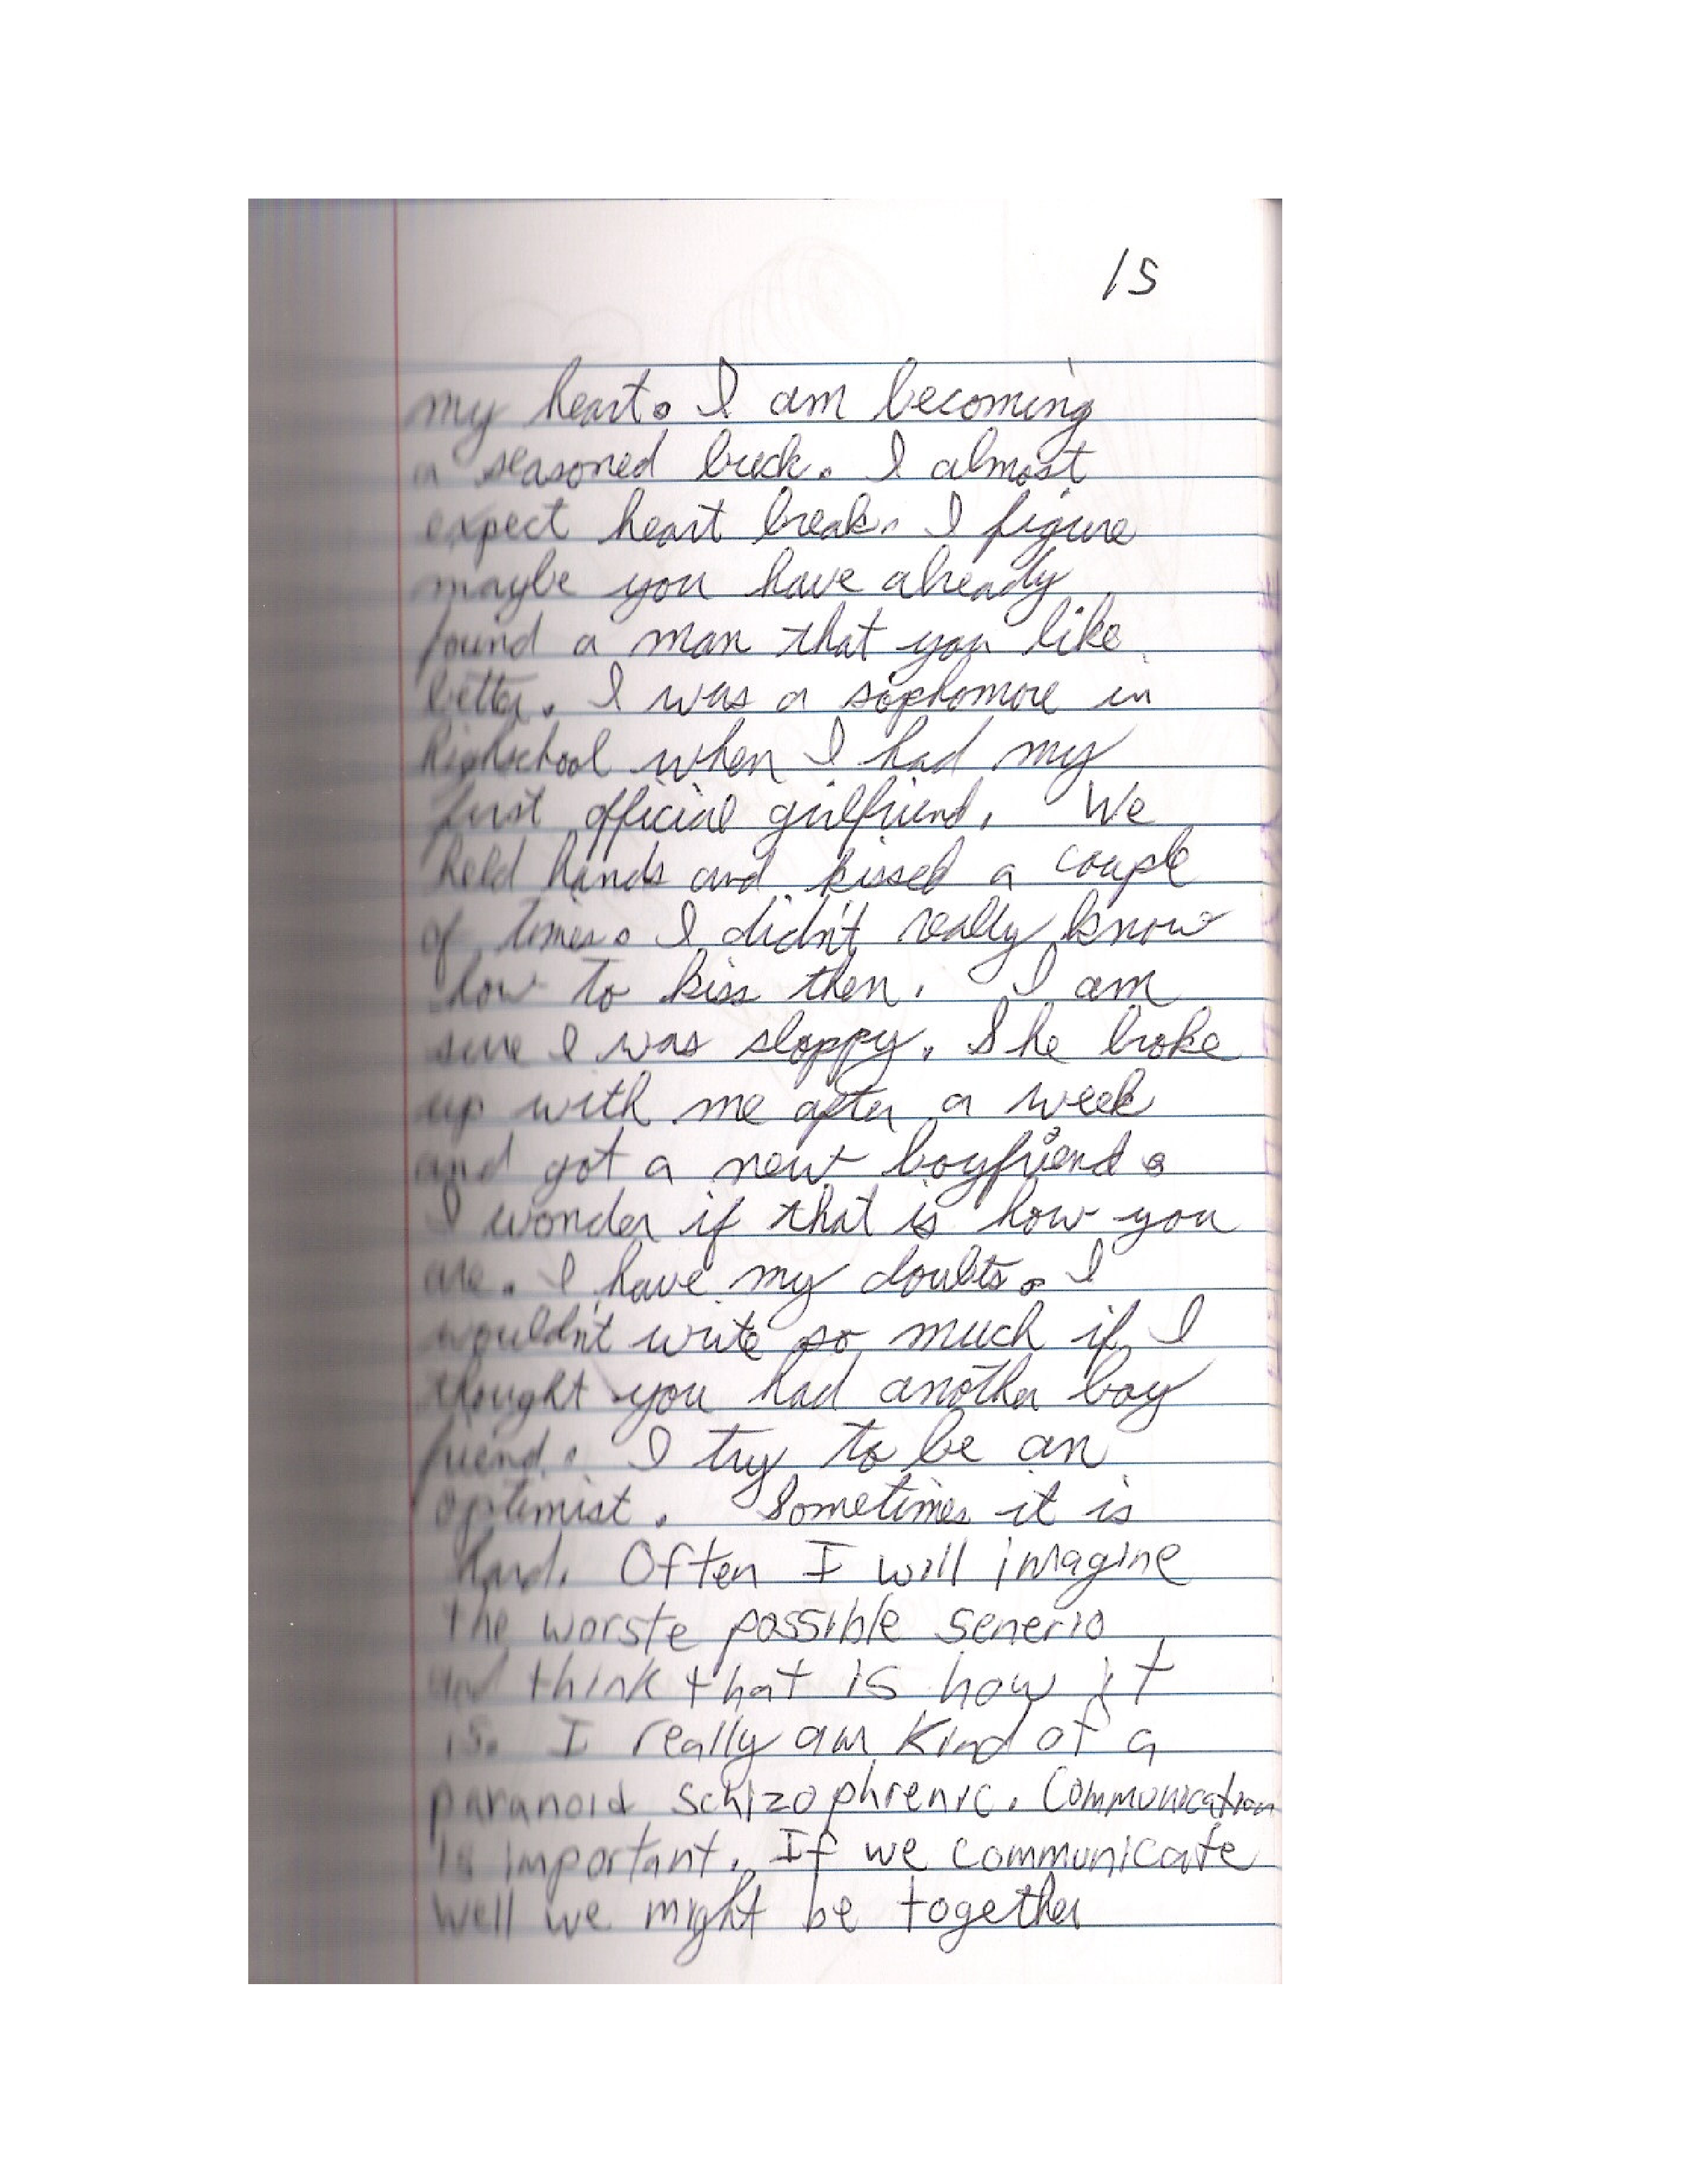 15
my heart. I am becoming
a seasoned buck. I almost
expect heart break. I figure
maybe you have already
found a man that you like
better. I was a sophomore in
highschool when I had my
first official girlfriend. We
held hands and kissed a couple
of times. I didn't really know
how to kiss then. I am
sure I was sloppy. She broke
up with me after a week
and got a new boyfriend.
I wonder if that is how you
are. I have my doubts. I
wouldn't write so much if I
thought you had another boy
friend. I try to be an
optimist. Sometimes it is
hard. Often I will imagine
the worste possible senerio
and think that is how it
is. I really am kind of a
paranoid schizophrenic. Communication
is important. If we communicate
well we might be together